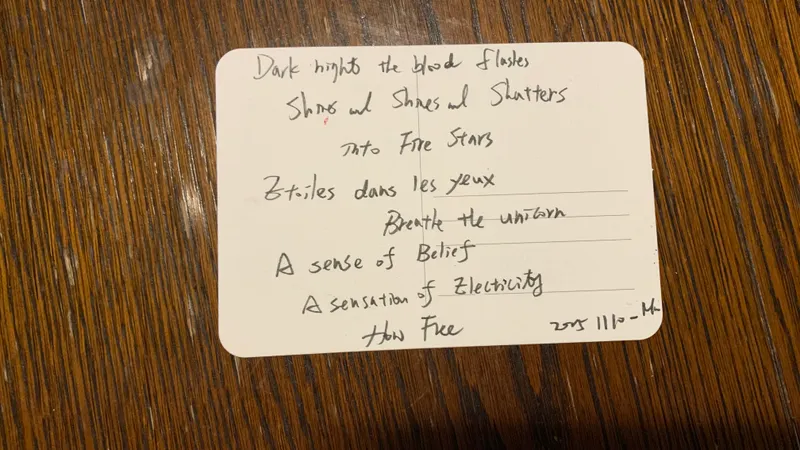 Dark nights the blood flashes
Shines and Shines and Shatters
into Fire Stars
Etoiles dans les yeux
Breathe the unicorn
A sense of Belief
A sensation of Electicity
How Free
2025 1110-